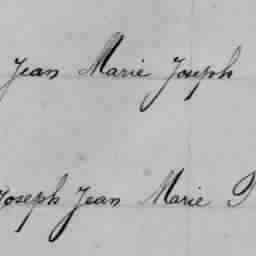 Jean Marie Joseph
Joseph Jean Marie